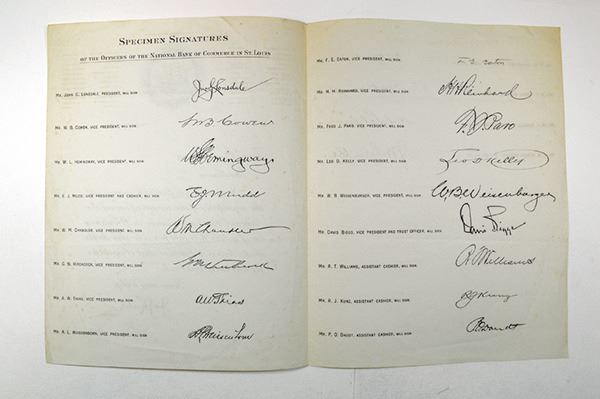 Specimen Signatures
of the Officers of the National Bank of Commerce in St. Louis
Mr. John G. Lonsdale, president, will sign Jno G Lonsdale
Mr. W. B. Cowen, vice president, will sign W B Cowen
Mr. W. L. Hemingway, vice president, will sign W L Hemingway
Mr. E. J. Mudd, vice president and cashier, will sign E J Mudd
Mr. W. M. Chandler, vice president, will sign W M Chandler
Mr. vice president, will sign
Mr. A. W. Thias, vice president, will sign A W Thias
Mr. A. L. Weissenborn, vice president, will sign A L Weissenborn
Mr. F. E. Eaton, vice president, will sign F. E. Eaton
Mr. H. H. Reinhard, vice president, will sign H H Reinhard
Mr. Fred J. Paro, vice president, will sign F. J. Paro
Mr. Leo D. Kelly, vice president, will sign Leo D Kelly
Mr. W. B. Weisenburger, vice president, will sign W. B. Weisenburger
Mr. David Biggs, vice president and trust officer, will sign David Biggs
Mr. R. T. Williams, assistant cashier, will sign R T Williams
Mr. R. J. Kunz, assistant cashier, will sign R J Kunz
Mr. P. D. assistant cashier, will sign